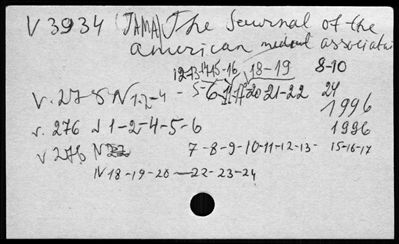 V 3934 (JAMA) The Journal of the
american medical associatio
12-13-14-15-16 18-19 8-10
V. 275 N 1-2-4 - 5-6- 20 21-22 24
1996
v. 276 N 1-2-4-5-6 1996
v 276 N 7-8-9-10-11-12-13- 15-16-17
N 18-19-20-22-23-24